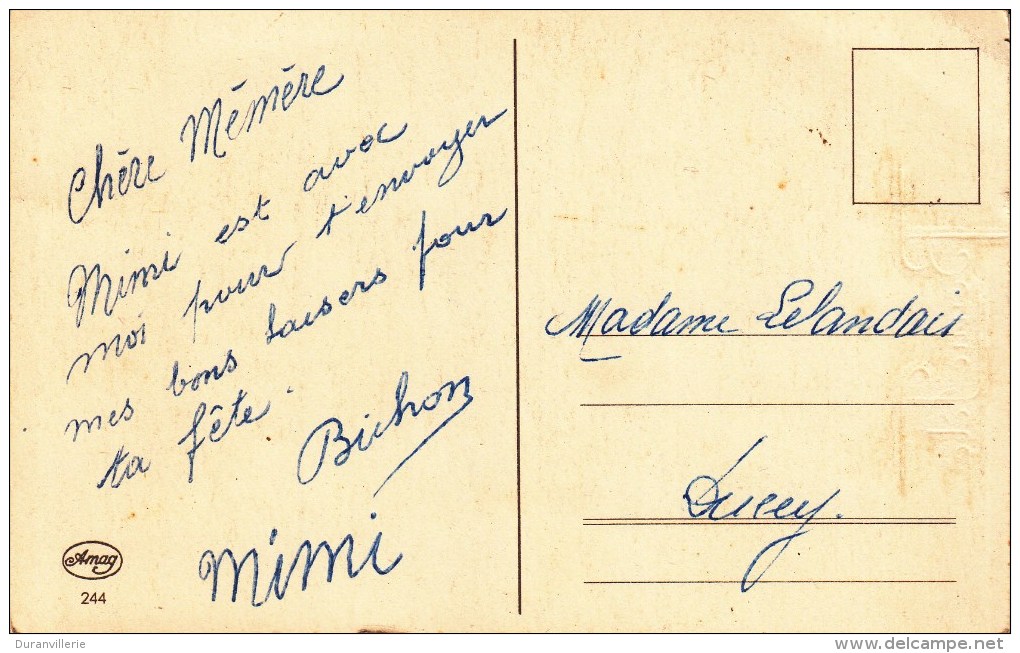 Chère Mémère
Mimi est avec
moi pour t'envoyer
mes bons baisers pour
ta fête.
Bichon
Mimi
Amag
244
Madame Lelandais
Ducey.
Duranvillerie
www.delcampe.net